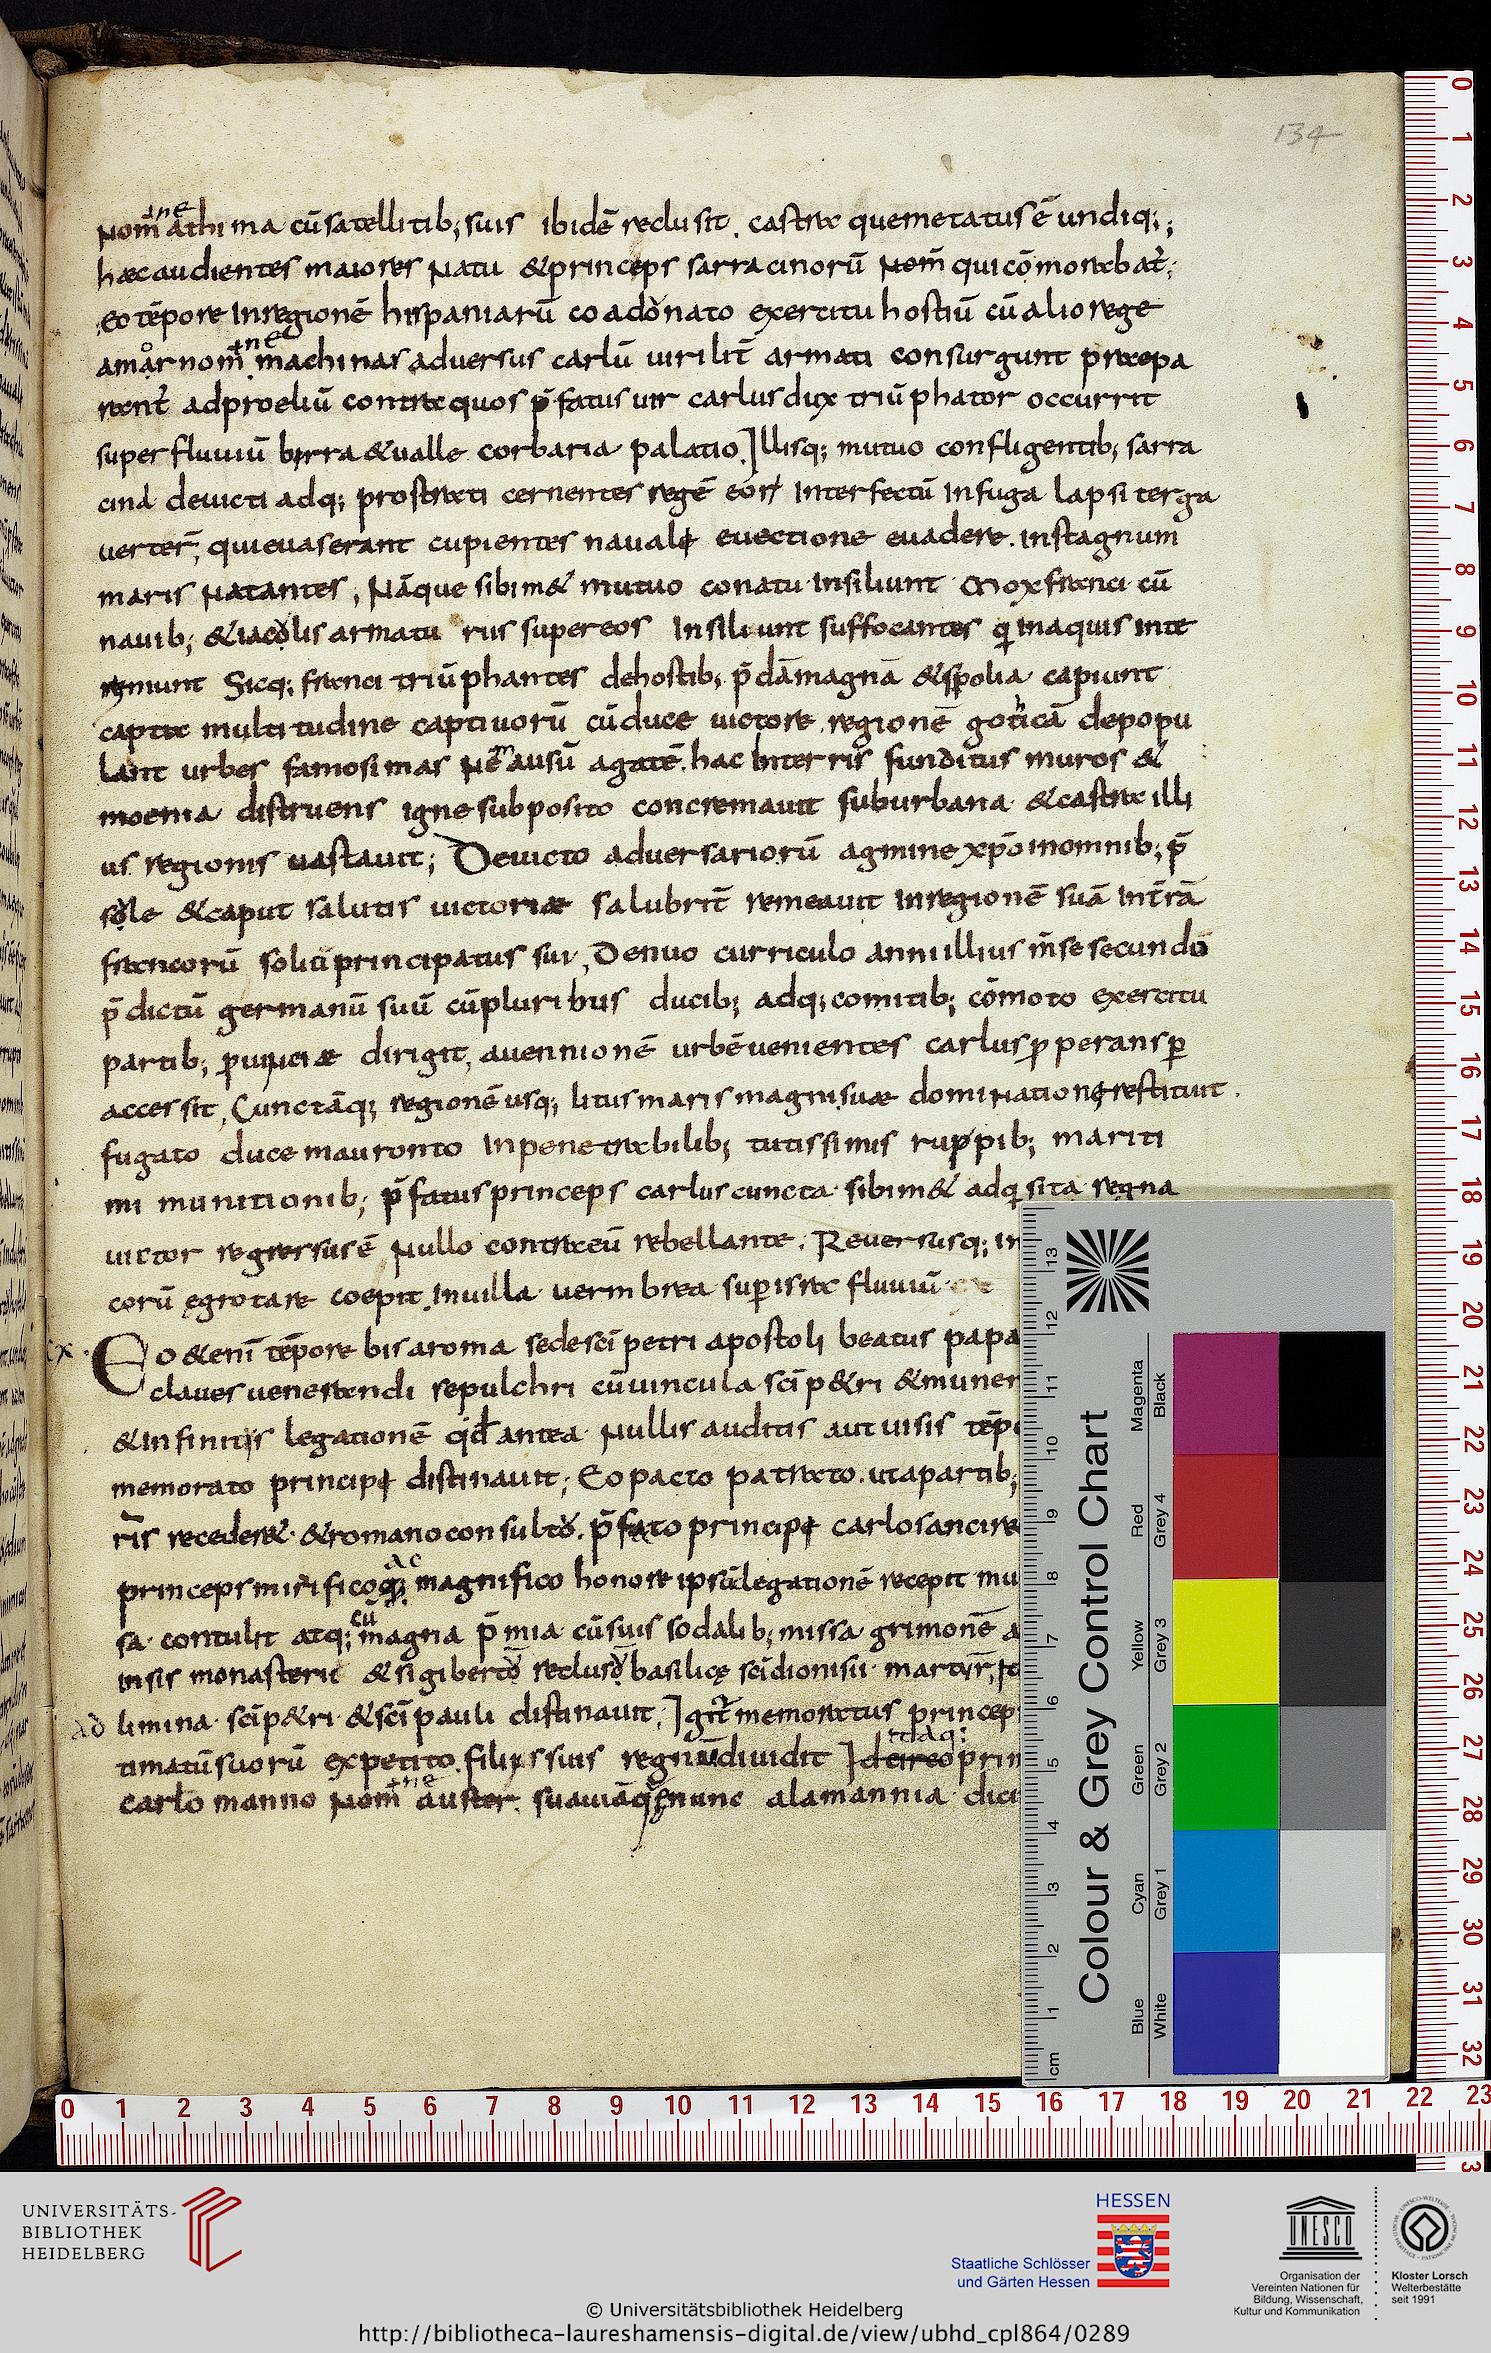 134
nom̄ athima cū satellitib; suis ibidē reclusit. castra que metatus ē undiq;;
hæc audientes maiores natu & princeps sarracinorū nom̄ qui cōmorabat̄;
eo tēpore in regionē hispaniarū coadonato exercitu hostiū cū alio rege
amar nom̄ machinas adversus carlū uirilit̄ armati consurgunt præpa
rent̄ ad proeliū contra quos p̄fatus uir carlus dux triūphator occurrit
super fluuiū birra & ualle corbaria palatio. Illisq; mutuo confligentib; sarra
cini deuicti adq; prostrati cernentes regē eorꝝ interfectū in fuga lapsi terga
uerter̄; qui euaserant cupientes nauale euectione euadere. in stagnum
maris natantes, Nāque sibim& mutuo conatu insiliunt Mox franci cū
nauib; & iacolis armatu rus super eos insiliunt suffocantes q; in aquis inte
remunt Sicq; franci triūphantes de hostib; p̄dā magnā & spolia capiunt
capta multitudine captiuorū cū duce uictore regionē goticā depopu
lant urbes famosimas Nemausū agatē. hac biterris funditus muros &
moenia distruens igne subposito concremauit suburbana & castra illi
us regionis uastauit; Deuicto adversariorū agmine xp̄o in omnib; p̄
sole & caput salutis uictoriæ salubrit̄ remeauit in regionē suā in t̄rā
francorū soliti principatus sui, Denuo curriculo anni illius m̄se secundo
p̄dictū germanū suū cū pluribus ducib; adq; comitib; cōmoto exercitu
partib; puinciæ dirigit, auennionē urbē uenientes carlus pperans p
accessit, Cunctāq; regionē usq; litus maris magni suæ dominatione restituit.
fugato duce mauronto inpenetrabilib; tutissimis ruppib; mariti
mi munitionib; p̄fatus princeps carlus cuncta sibim& adqsita regna
uictor regressus ē nullo contra eū rebellante. Reuersusq; in
corū ęgrotare coepit in uilla uermbrea sup isra fluuiū
cx. Eo &enī tēpore bis a roma sede sc̄i petri apostoli beatus papa
claues uenerandi sepulchri cū uincula sc̄i p&ri & muner
& infinitis legationē qd̄ antea nullis auditis aut uisis tēpo
memorato principe distinauit; Eo pacto patrato. ut a partib;
ris receder& & romano consulto. p̄fato principe carlo sancire
ac
princeps mirifico q; magnifico honore ipsā legationē recepit mu
cū
sa contulit atq; magna p̄mia cū suis sodalib; missa grimonē a
insis monasterii & sigiberto recluso basilicę sc̄i dionisii martyr̄
ad limina sc̄i p&ri & sc̄i pauli distinauit; Igit̄ memoratus princep
itaq:
timatū suorū expetito. filiis suis regna diuidit Idcireo prin
carlo manno nom̄ auster. suauiā q; nunc alamannia dici
Colour & Grey Control Chart
Magenta Black
Red Grey 4
Yellow Grey 3
Green Grey 2
Cyan Grey 1
Blue White
cm 1 2 3 4 5 6 7 8 9 10 11 12 13
0 1 2 3 4 5 6 7 8 9 10 11 12 13 14 15 16 17 18 19 20 21 22 23 24 25 26 27 28 29 30 31 32 3
0 1 2 3 4 5 6 7 8 9 10 11 12 13 14 15 16 17 18 19 20 21 22 23
UNIVERSITÄTS-
BIBLIOTHEK
HEIDELBERG
HESSEN
Staatliche Schlösser
und Gärten Hessen
UNESCO
Organisation der
Vereinten Nationen für
Bildung, Wissenschaft,
Kultur und Kommunikation
Kloster Lorsch
Welterbestätte
seit 1991
© Universitätsbibliothek Heidelberg
http://bibliotheca-laureshamensis-digital.de/view/ubhd_cpl864/0289